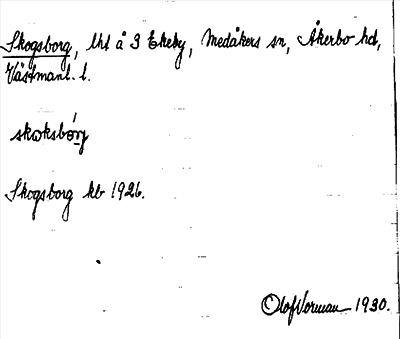 Skogsborg, lht å 3 Ekeby, Medåkers sn, Åkerbo hd,
Västmanl. l.
skoksbórj
Skogsborg kb 1926.
Olof Vorman 1930.